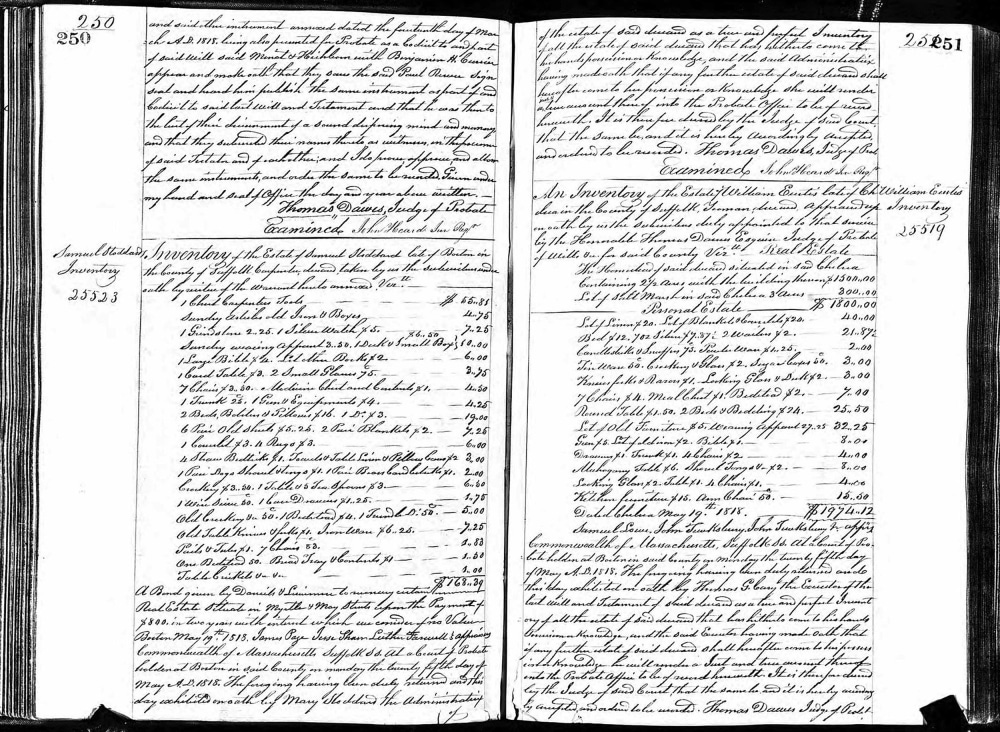 250
250
and said other instrument annexed dated the fourteenth day of Mar
ch A.D. 1818. being also presented for Probate as a Codicil to and part
of said Will said Minot & Hichborn with Benjamin H. Currier
appear and make oath that they saw the said Paul Revere sign
seal and heard him publish the same instrument as part of and
Codicil to said last Will and Testament and that he was then to
the best of their discernment of a sound disposing mind and memory
and that they subscribed their names thereto as witnesses, in the presence
of said Testator and of each other; and I do prove, approve, and allow
the same instruments, and order the same to be recorded. Given under
my hand and seal of Office the day and year above written
Thomas Dawes, Judge of Probate
Examined, John Heard Jun Regr
Samuel Stoddard
Inventory
25523
Inventory of the Estate of Samuel Stoddard late of Boston in
the County of Suffolk Carpenter deced taken by us the subscribers under
oath by virtue of the Warrant hereto annexed. Vizt
1 Chest Carpenters Tools $ 65.85
Sundry articles old Iron & Boxes 4.75
1 Grindstone 2.25. 1 Silver Watch $5. 7.25
Sundry wearing Apparel 3.50. 1 Desk & Small Box $6.50 10.00
1 Large Bible $4. Lot other Books $2 6.00
1 Card Table $3. 2 Small Glasses 75c 3.75
7 Chairs $3.50. Medicine Chest and Contents $1. 4.50
1 Trunk 25. 1 Gun & Equipments $4. 4.25
2 Beds, Bolsters & Pillows $16. 1 Do $3. 19.00
6 Pair Old sheets $5.25. 2 Pair Blankets $2. 7.25
1 Coverlid $3. 4 Rugs $3. 6.00
4 Straw Bedticks $1. Towels & Table Linen & Pillow Cases $2 3.00
1 Pair Dogs Shovel & tongs $1. 1 Pair Brass Candlesticks $1. 2.00
Crockery $3.50. 1 Table & 5 Tea Spoons $3 6.50
1 Wire Sieve 50. 1 Case Drawers $1.25. 1.75
Old Crockery &c 50. 1 Bedstead $4. 1 Trundle Do 50c 5.00
Old Table Knives & forks $1. Iron Ware $6.25. 7.25
Pails & Tubs $1. 7 Chairs 83. 1.83
One Bedstead 50. Bread Tray & Contents $1 1.50
Table Crickets &c &c 1.00
$168.39
A Bond given by Daniels & Livermore to reconvey certain
Real Estate Situate in Myrtle & May Streets upon the Payment of
$800. in two years with interest which we consider of no Value
Boston May 19th 1818. James Page Jesse Shaw Luther Farwell } appraisers
Commonwealth of Massachusetts Suffolk Ss. At a Court of Probate
holden at Boston in said County on monday the twenty fifth day of
May A.D. 1818. The foregoing having been duly returned and this
day exhibited on oath by Mary Stoddard the Administratrix
251
251
of the estate of said deceased as a true and perfect Inventory
of all the estate of said deceased that hath hitherto come to
her hands possession or Knowledge, and the said Administratrix
having made oath that if any further estate of said deceased shall
hereafter come to her possession or Knowledge she will render
a true account thereof into the Probate Office to be of record
herewith. It is therefore decreed by the Judge of said Court,
that the same be, and it is hereby accordingly accepted,
and ordered to be recorded. Thomas Dawes, Judge of Prob
Examined, John Heard Jun Regr
William Eustis
Inventory
25519
An Inventory of the Estate of William Eustis late of Chel
sea in the County of Suffolk, Yeoman, deceased Appraised up
on oath by us the subscribers duly appointed to that service
by the Honorable Thomas Dawes Esquire Judge of Probate
of Wills &c for said County Vizt. Real Estate
The Homestead of said deceased situated in said Chelsea
Containing 2 1/2 Acres with the buildings thereon $1500.00
Lot of Salt Marsh in said Chelsea 3 Acres 300.00
$ 1800.00
Personal Estate
Lot of Linen $20. Lot of Blankets & Coverlids $20. 40.00
Bed $12. 7 oz Silver $7.87 1/2 2 Waiters $2. 21.87 1/2
Candlesticks & Snuffers 75. Pewter Ware $1.25. 2.00
Tin Ware 50. Crockery & Glass $2. 50c. 3.00
Knives forks & Razors $1. Looking Glass & Desk $2. 3.00
7 Chairs $4. Meal Chest $1. Bedstead $2. 7.00
Round Table $1.50. 2 Beds & Bedding $24. 25.50
Lot of Old Furniture $5. Wearing Apparel 27.25 32.25
Gun $5. $2. Bible $1. 8.00
Drawers $1. Trunk $1. 4 Chairs $2. 4.00
Mahogany Table $6. Shovel Tongs &c $2. 8.00
Looking Glass $2. Table $1. 4 Chairs $1. 4.00
Kitchen furniture $15. Arm Chair 50. 15.50
Dated Chelsea May 19th 1818. $1974.12
Samuel Low, John Tewksbury, John Tewksbury 2d apprs
Commonwealth of Massachusetts, Suffolk Ss. At a Court of Pro
bate holden at Boston in said County on monday the twenty fifth day
of May A.D. 1818. The foregoing having been duly returned and
this day exhibited on oath by the Executor of the
last Will and Testament of said deceased as a true and perfect Invent
ory of all the estate of said deceased that has hitherto come to his hands
Possession or Knowledge, and the said Executor having made oath that
if any further estate of said deceased shall hereafter come to his posses
ion or Knowledge he will render a Just and true account thereof
into the Probate Office to be of record herewith. It is therefore decreed
by the Judge of said Court that the same be and it is hereby according
ly accepted, and ordered to be recorded. Thomas Dawes Judge of Probt.